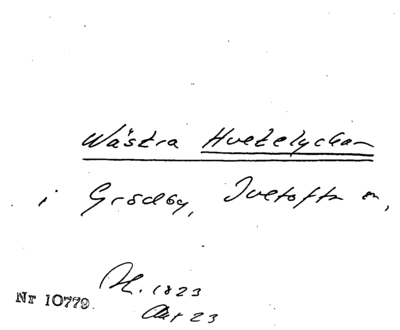 Wästra Hvetelyckan
i Grödby, Ivetofta sn,
Nr 10779. H. 1823
Akt 23